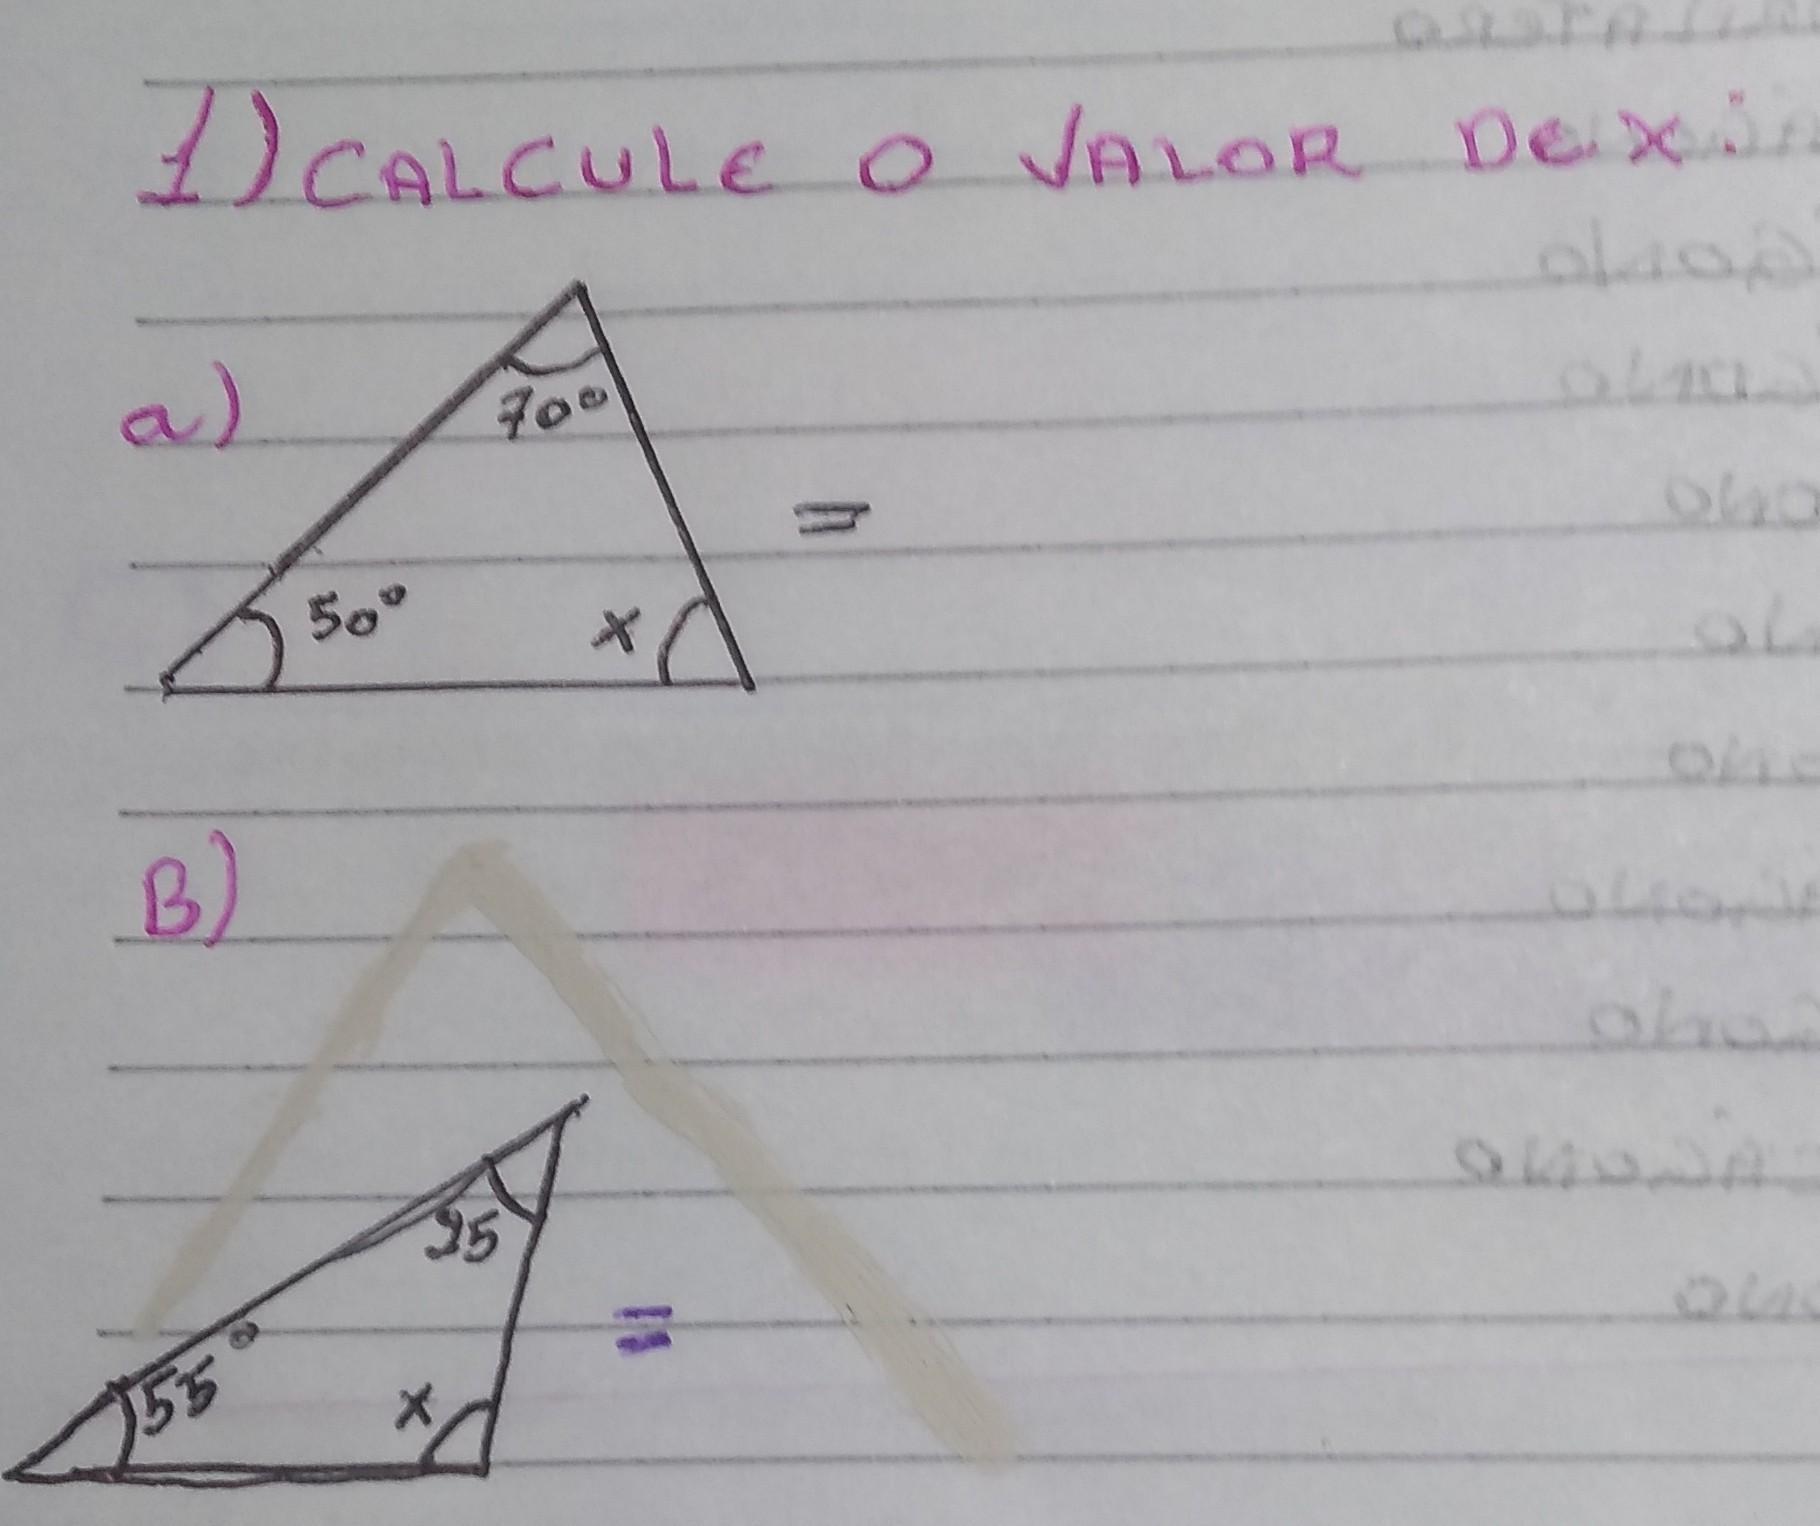 1) CALCULE O VALOR DE X:
a)
70°
=
50° x
B)
=
55° x